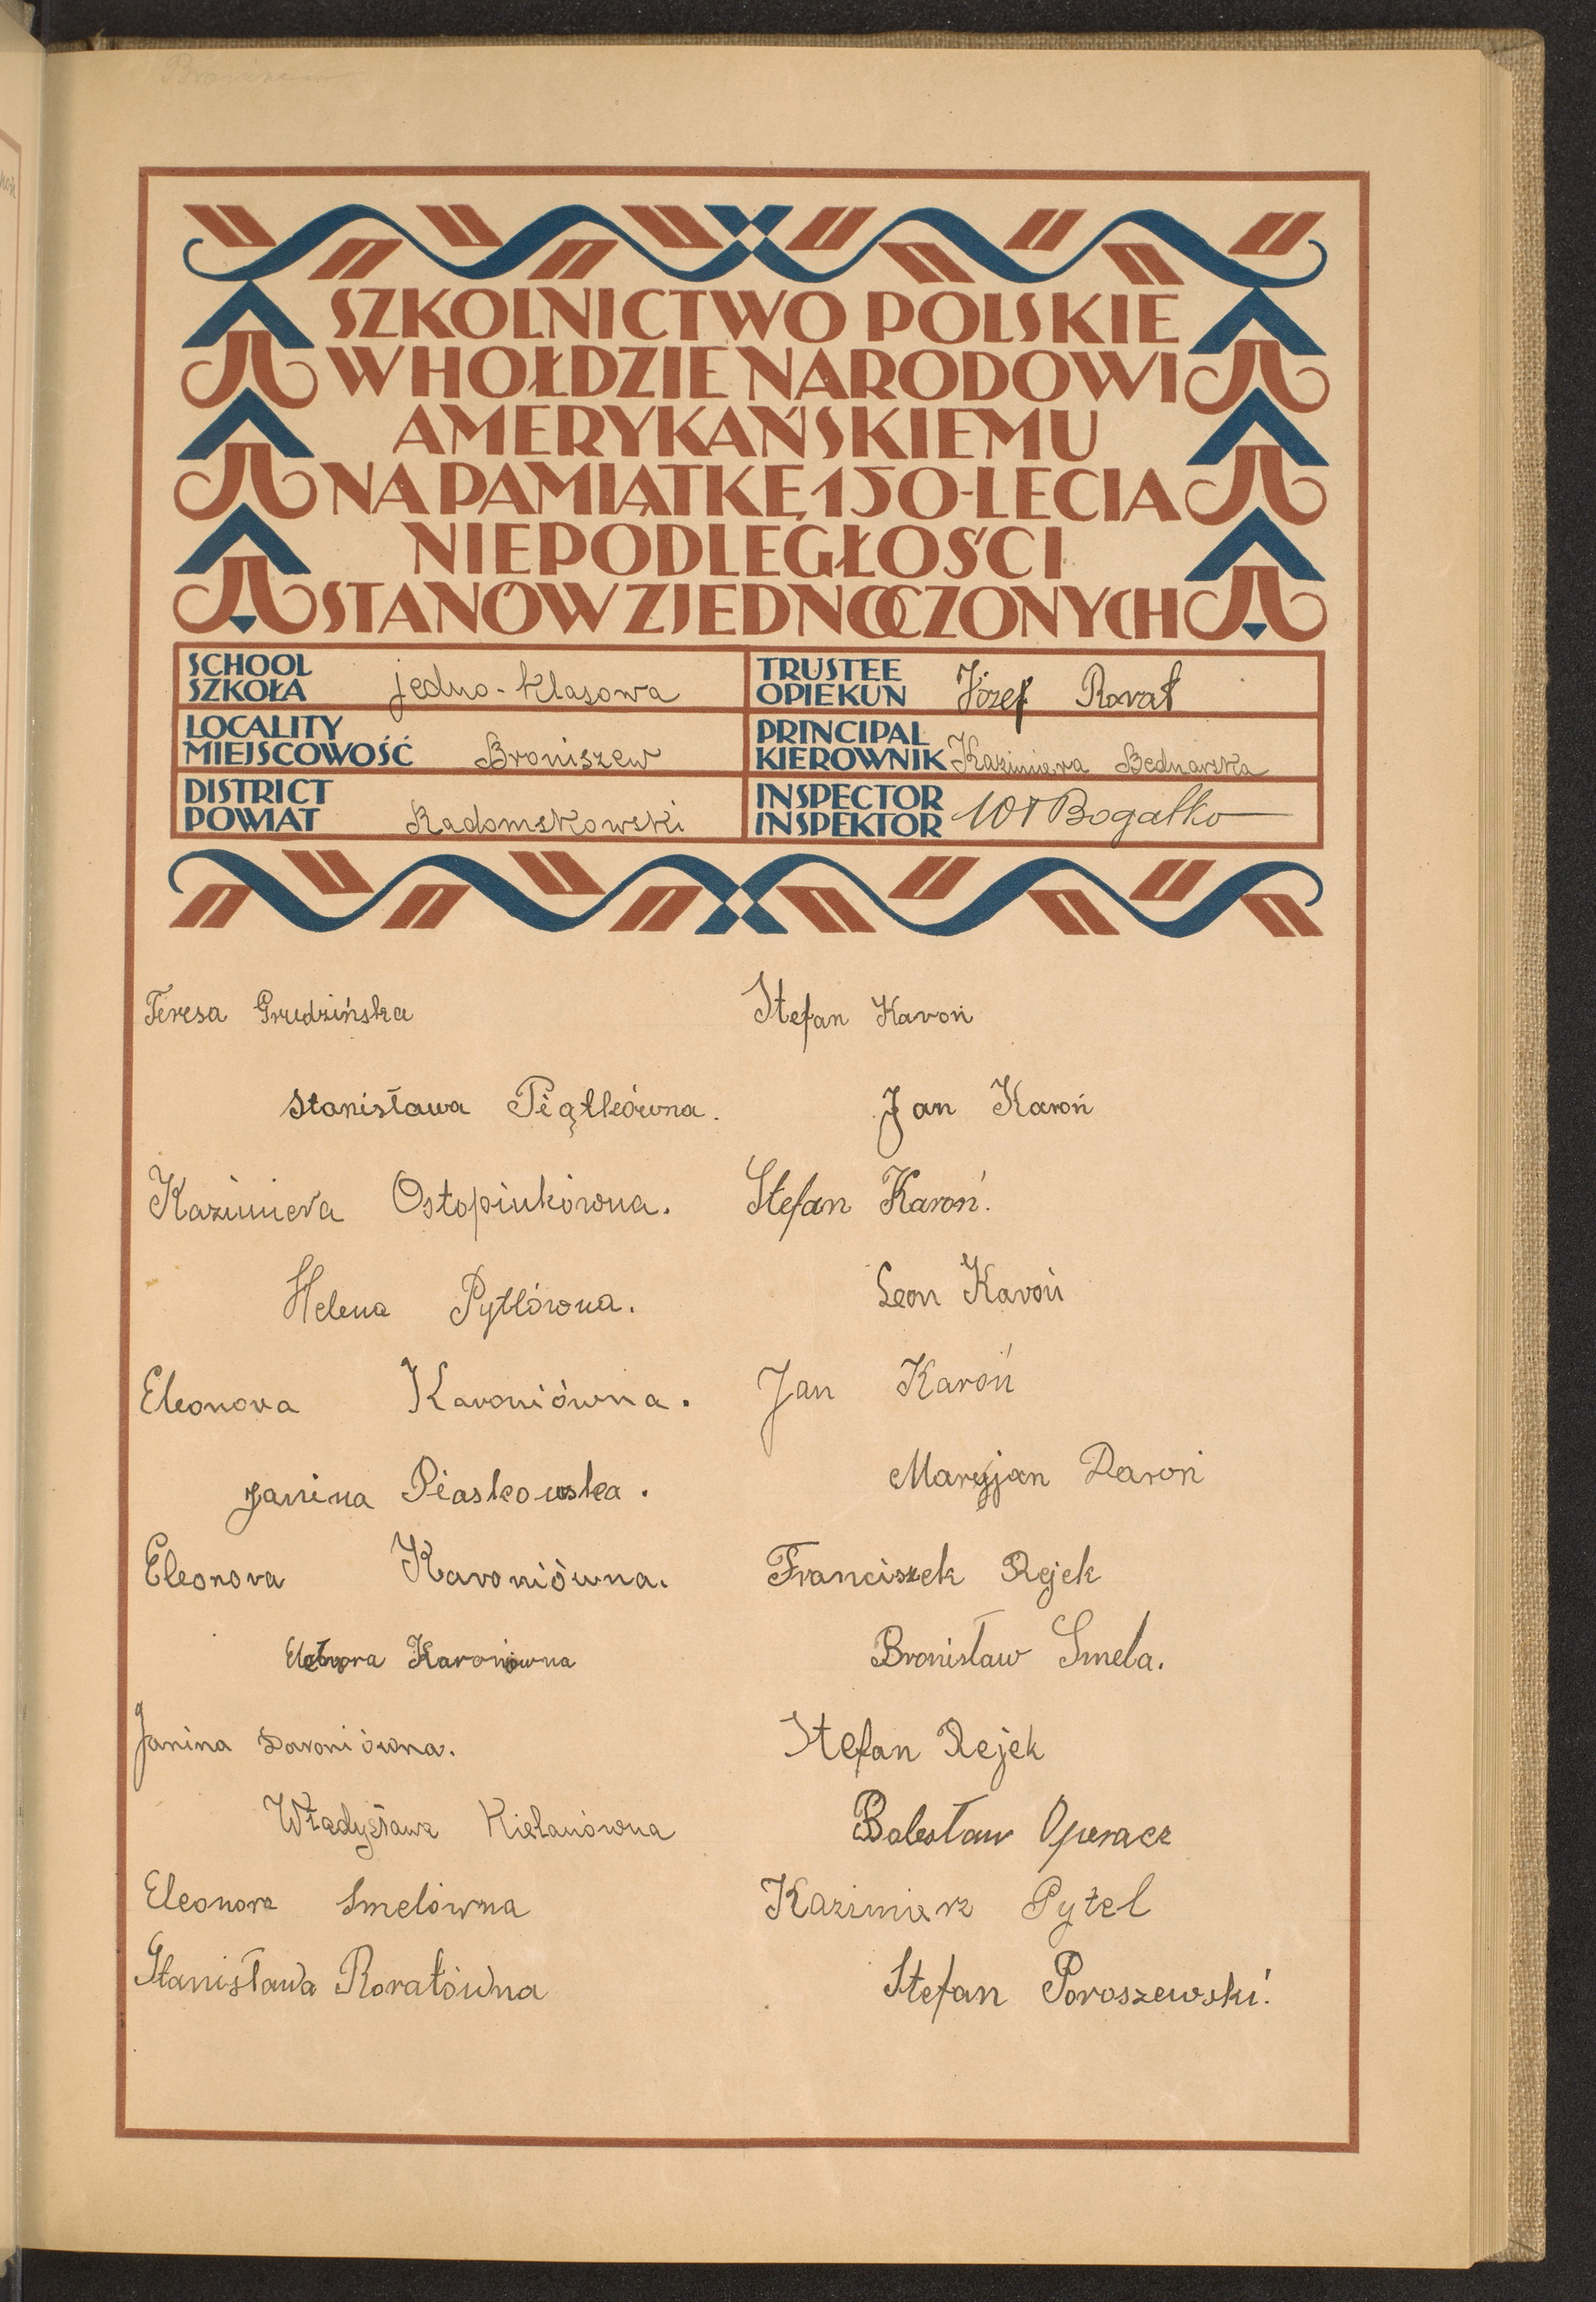 Broniszew
SZKOLNICTWO POLSKIE
W HOŁDZIE NARODOWI
AMERYKAŃSKIEMU
NA PAMIĄTKĘ 150-LECIA
NIEPODLEGŁOŚCI
STANÓW ZJEDNOCZONYCH
SCHOOL
SZKOŁA jedno-klasowa
TRUSTEE
OPIEKUN Józef Rorat
LOCALITY
MIEJSCOWOŚĆ Broniszew
PRINCIPAL
KIEROWNIK Kazimiera Bednarska
DISTRICT
POWIAT Radomskowski
INSPECTOR
INSPEKTOR Bogatko
Teresa Grudzińska
Stanisława Piątkówna.
Kazimiera Ostopinkówna.
Helena Pytlówna.
Eleonora Karoniówna.
Janina Piaskowska.
Eleonora Karoniówna.
Eleonora Karoniówna
Janina Daroniówna.
Władysława Kielanówna
Eleonora Smelówna
Stanisława Roratówna
Stefan Karoń
Jan Karoń
Stefan Karoń.
Leon Karoń
Jan Karoń
Maryjan Daroń
Franciszek Rejek
Bronisław Smela.
Stefan Rejek
Bolesław Operacz
Kazimierz Pytel
Stefan Poroszewski.